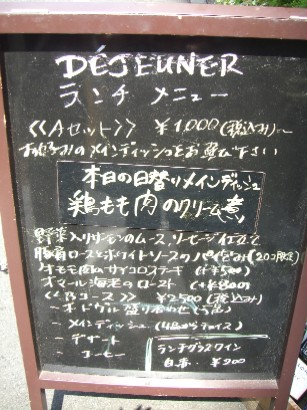 DÉJEUNER
ランチ メニュー
《Aセット》 ¥1,000(税込み)〜
お好みのメインディッシュをお選び下さい
本日の日替りメインディッシュ
鶏もも肉のクリーム煮
野菜入りサーモンのムース、ソーセージ仕立て
豚肩ロースとホワイトソースのパイ包み(20コ限定)
オモモ肉のサイコロステーキ (+¥500)
オマール海老のロースト (+¥800)
《Bコース》 ¥2500(税込み)
- オードブル盛り合わせ
- メインディッシュ (4品からチョイス)
- デザート
- コーヒー
ランチグラスワイン
白・赤 ‥ ¥200